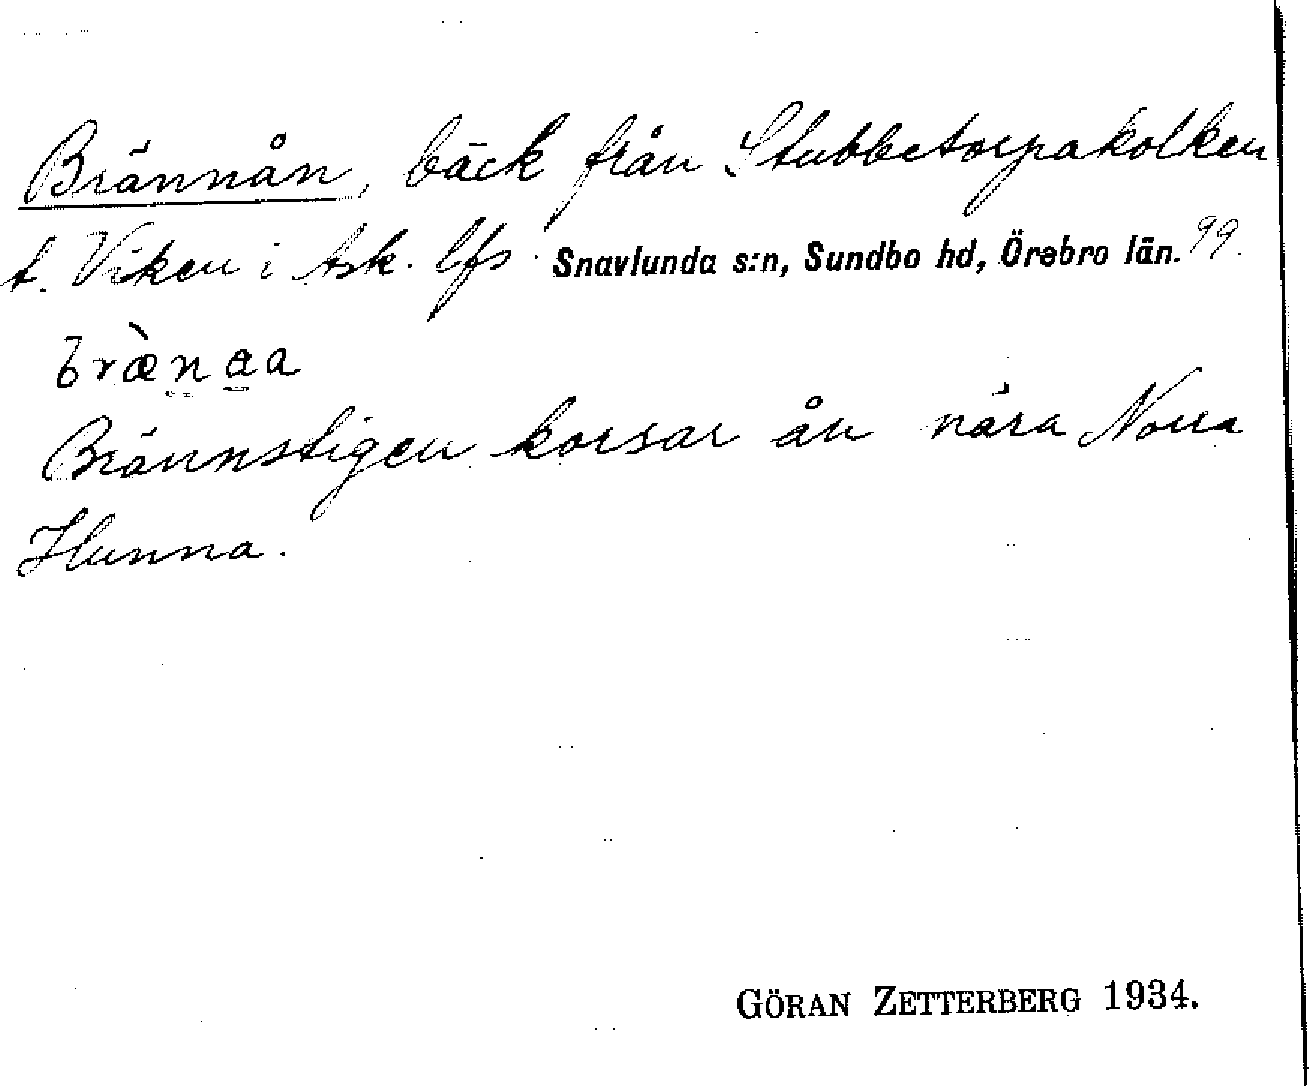 Brännån, bäck från Stubbetorpakolken
t. Viken i Ask. lfs Snavlunda s:n, Sundbo hd, Örebro län. 99.
bræ̀nаa
Brännstigen korsar ån nära Norra
Hunna.
GÖRAN ZETTERBERG 1934.